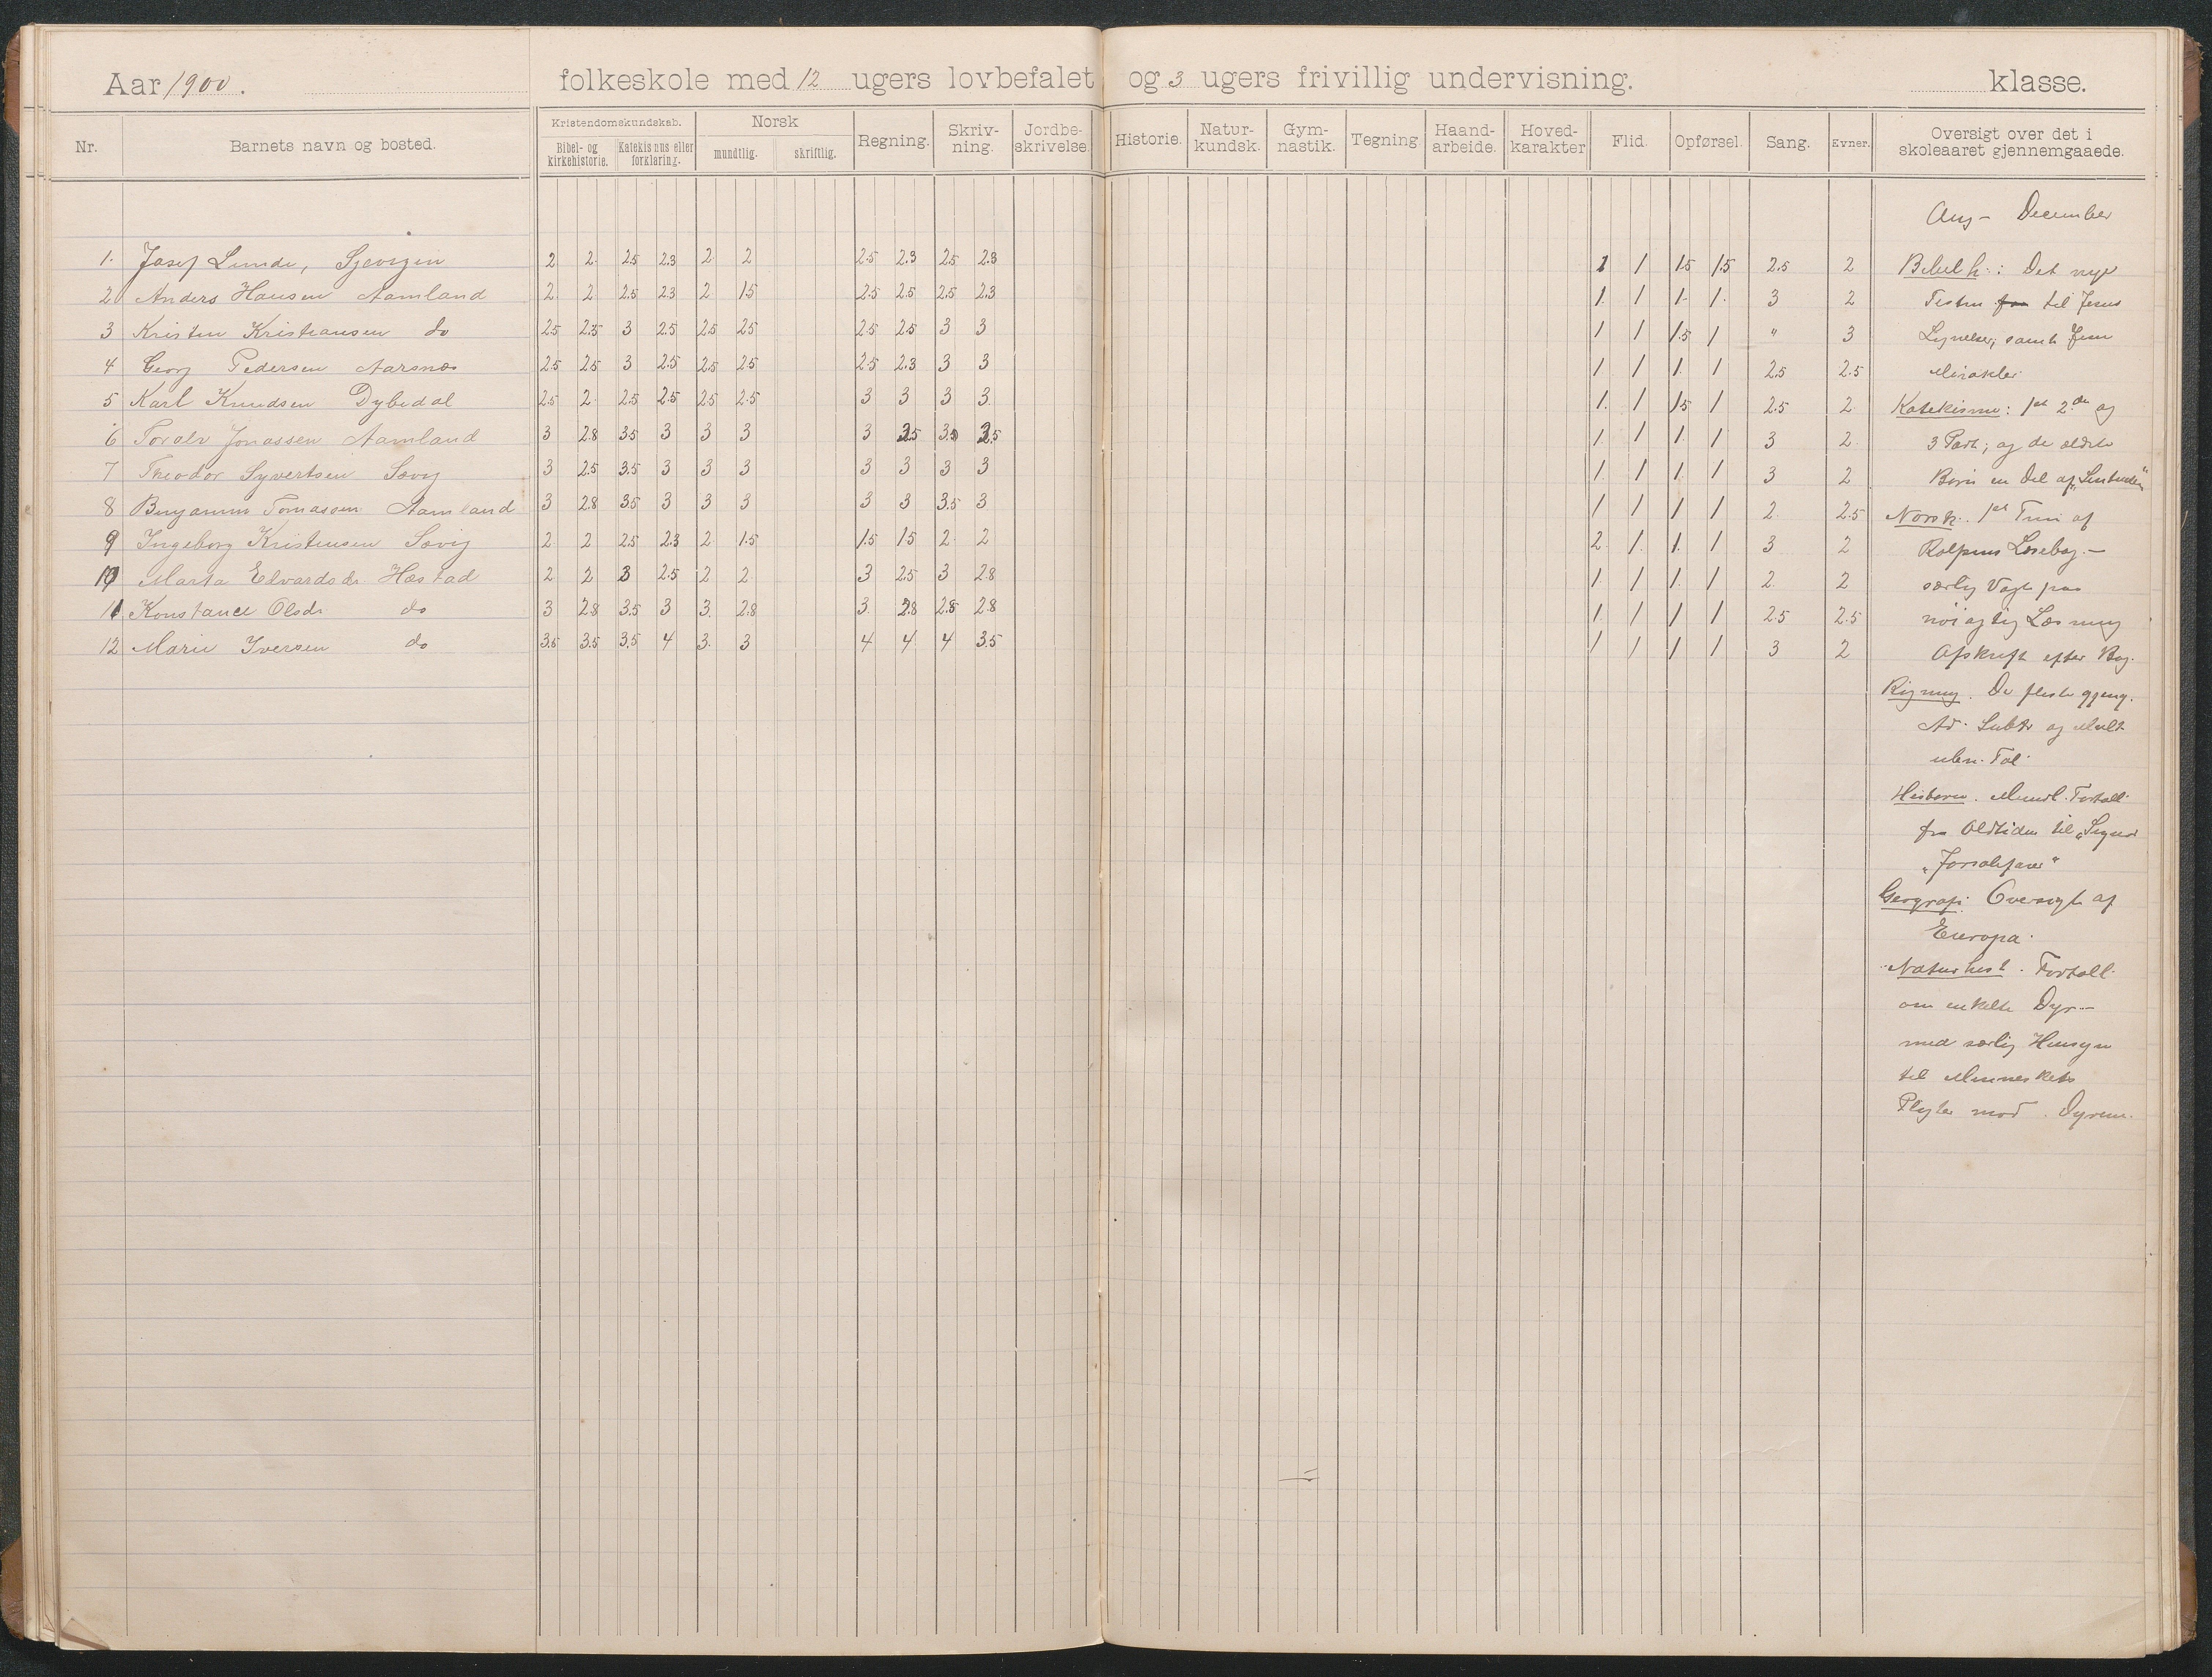 Aar 1900. folkeskole med 12 ugers lovbefalet og 3 ugers frivillig undervisning. klasse.
Nr. Barnets navn og bosted. Kristendomskundskab. Bibel- og kirkehistorie. Katekismus eller forklaring. Norsk mundtlig. skriftlig. Regning. Skriv-ning. Jordbe-skrivelse. Historie. Natur-kundsk. Gym-nastik. Tegning Haand-arbeide. Hoved-karakter Flid. Opførsel. Sang. Evner. Oversigt over det i skoleaaret gjennemgaaede.
1. Josef Lunde, Sjævigen 2 2. 2.5 2.3 2 2 2.5 2.3 2.5 2.3 1 1 1.5 1.5 2.5 2
2 Anders Hansen Aamland 2 2 2.5 2.3 2 1.5 2.5 2.5 2.5 2.3 1. 1 1. 1. 3 2
3 Kristen Kristiansen do 2.5 2.5 3 2.5 2.5 2.5 2.5 2.5 3 3 1 1 1.5 1 " 3
4 Georg Pedersen Aarsnæs 2.5 2.5 3 2.5 2.5 2.5 2.5 2.3 3 3 1 1 1. 1 2.5 2.5
5 Karl Knudsen Dybedal 2.5 2 2.5 2.5 2.5 2.5 3 3 3 3. 1. 1 1.5 1 2.5 2
6 Toralv Jonassen Aamland 3 2.8 3.5 3 3 3 3 3.5 1. 1 1. 1 3 2
7 Theodor Syvertsen Sævig 3 2.5 3.5 3 3 3 3 3 3 3 1. 1 1. 1 3 2
8 Benjamin Tomassen Aamland 3 2.8 3.5 3 3 3 3 3 3.5 3 1 1 1 1 2 2.5
9 Ingeborg Kristensen Sævig 2 2 2.5 2.3 2 1.5 1.5 1.5 2 2 2 1. 1. 1 3 2
10 Marta Edvardsdr. Hæstad 2 2 3 2.5 2 2 3 2.5 3 2.8 1. 1 1. 1 2 2
11 Konstance Olsdr do 3 2.8 3.5 3 3. 2.8 3. 2.8 2.8 2.8 1. 1 1 1 2.5 2.5
12 Marie Iversen do 3.5 3.5 3.5 4 3. 3 4 4 4 3.5 1 1 1 1 3 2
Aug - December
Bibelh.: Det nye
Testm. til Jesus
Lignelser, samt Jesu
Mirakler.
Katekisme: 1st 2.den og
3 Part; og de ældste
Børn en Del af
Norsk. 1st Trin af
Rolfsens Læsebog. -
særlig Vægt paa
nöiagtig Læsning
Afskrift efter Bog.
Regning. De fleste gjeng.
Ad. Subtr og Mult
uben. Tal.
Historie. Mundl. Fortæll.
fra Oldtiden til „Sigurd
„Jorsalfarer“
Geografi. Oversigt af
Europa.
Naturhist. Fortæll.
om enkelte Dyr -
med særlig Hensyn
til Menneskets
Pligter mod Dyrene.